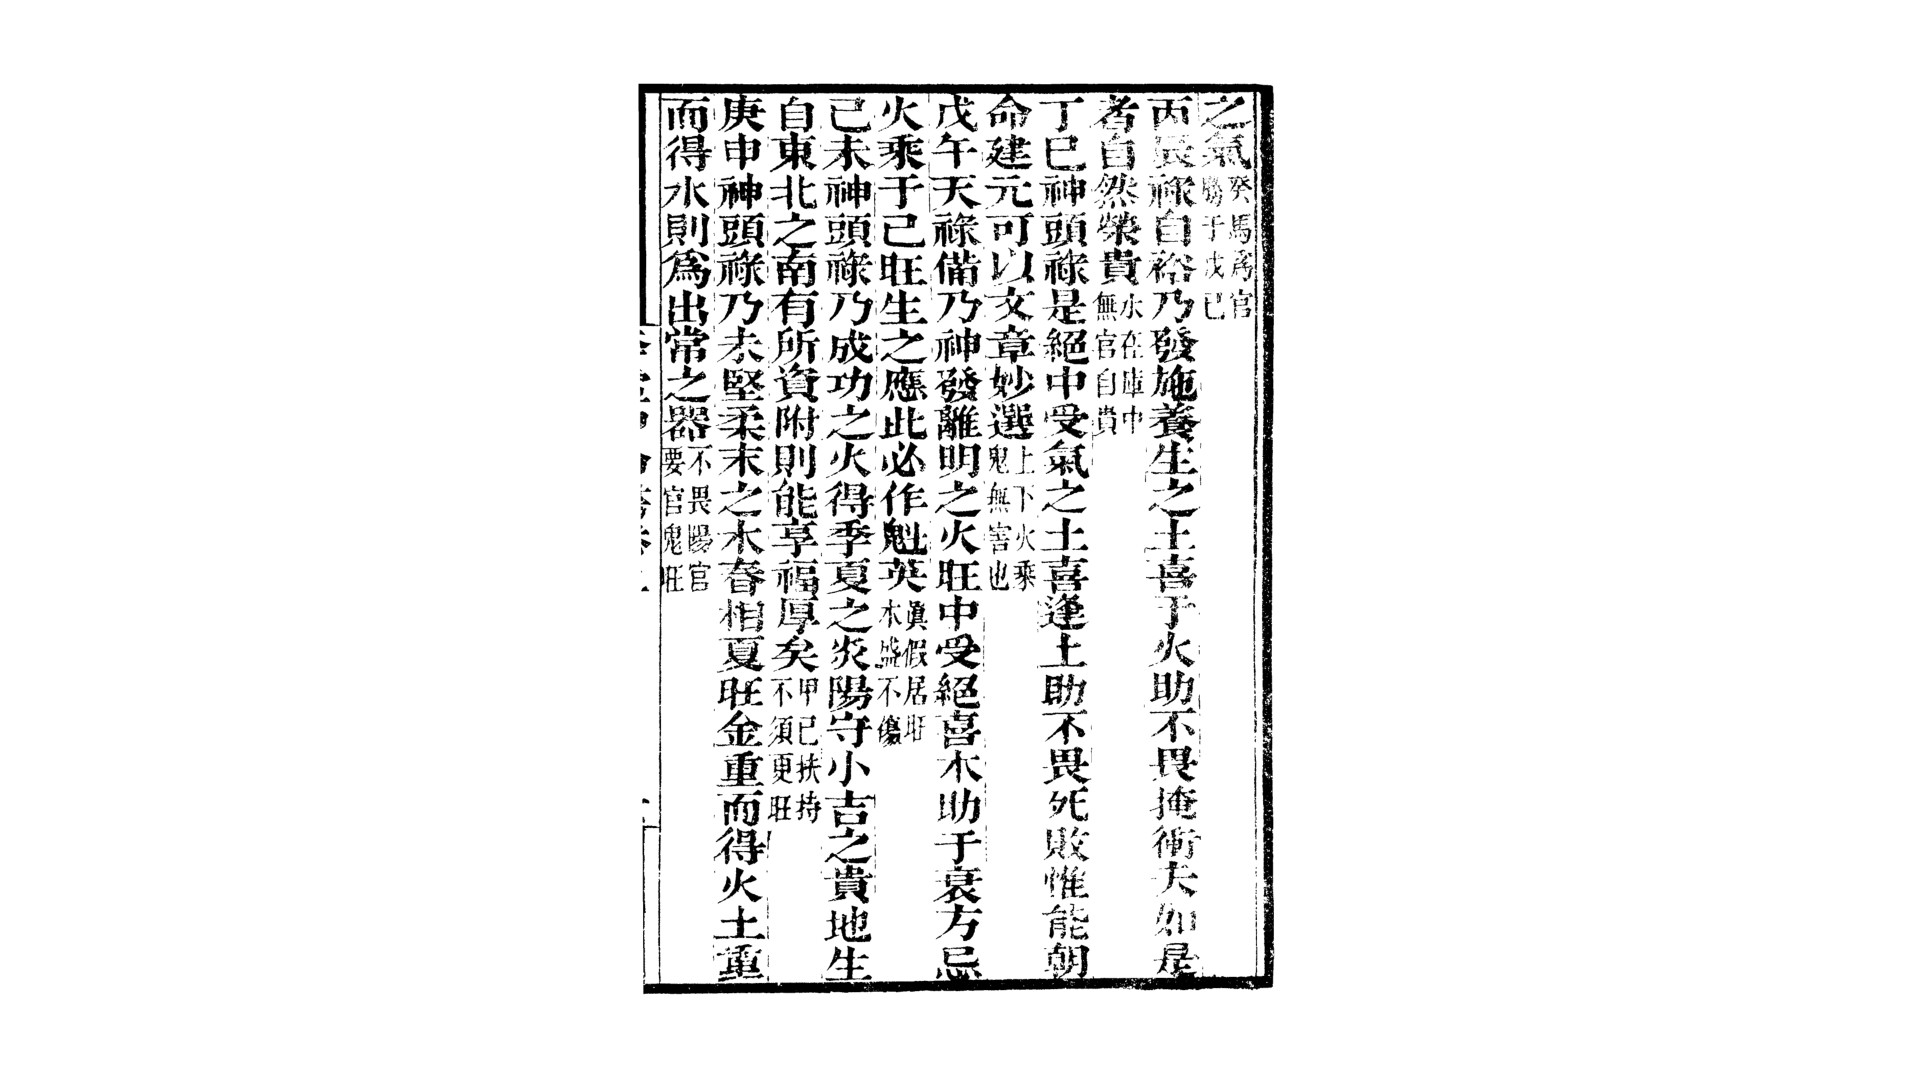 之氣癸馬爲官勝于戊己
丙辰祿自裕乃發施養生之土喜于火助不畏掩衝夫如是
者自然榮貴水在庫中無官自貴
丁巳神頭祿是絕中受氣之土喜逢土助不畏死敗惟能朝
命建元可以文章妙選上下火乘鬼無害也
戊午天祿備乃神發離明之火旺中受絕喜木助于衰方忌
火乘于己旺生之應此必作魁英眞假居旺木盛不傷
己未神頭祿乃成功之火得季夏之炎陽守小吉之貴地生
自東北之南有所資附則能享福厚矣甲己扶持不須更旺
庚申神頭祿乃未堅柔末之木春相夏旺金重而得火土重
而得水則爲出常之器不畏陽官要官鬼旺